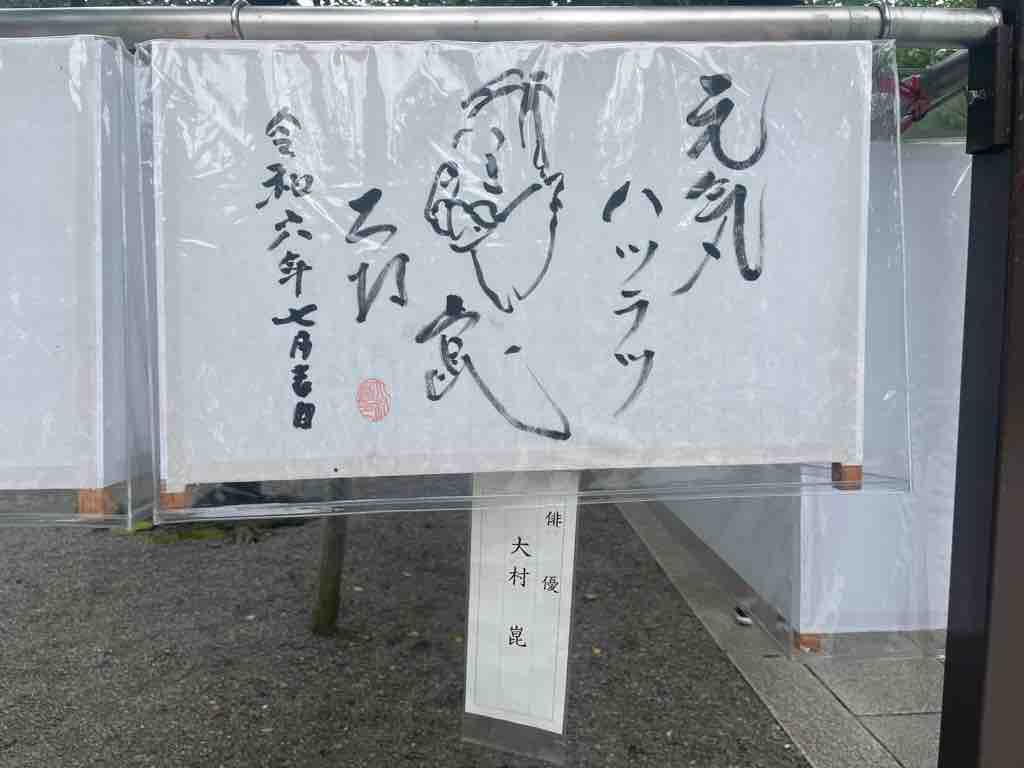 元気
ハツラツ
大村
崑
令和六年七月吉日
俳優
大村 崑